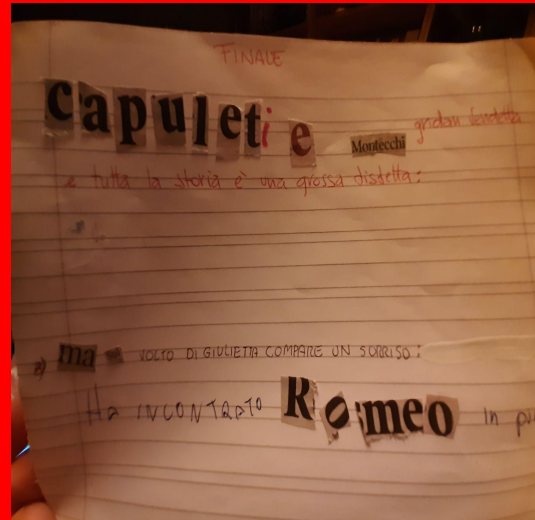 FINALE
capuleti e Montecchi gridan vendetta
e tutta la storia è una grossa disdetta:
2) ma VOLTO DI GIULIETTA COMPARE UN SORRISO:
Ha INCONTRATO Romeo in